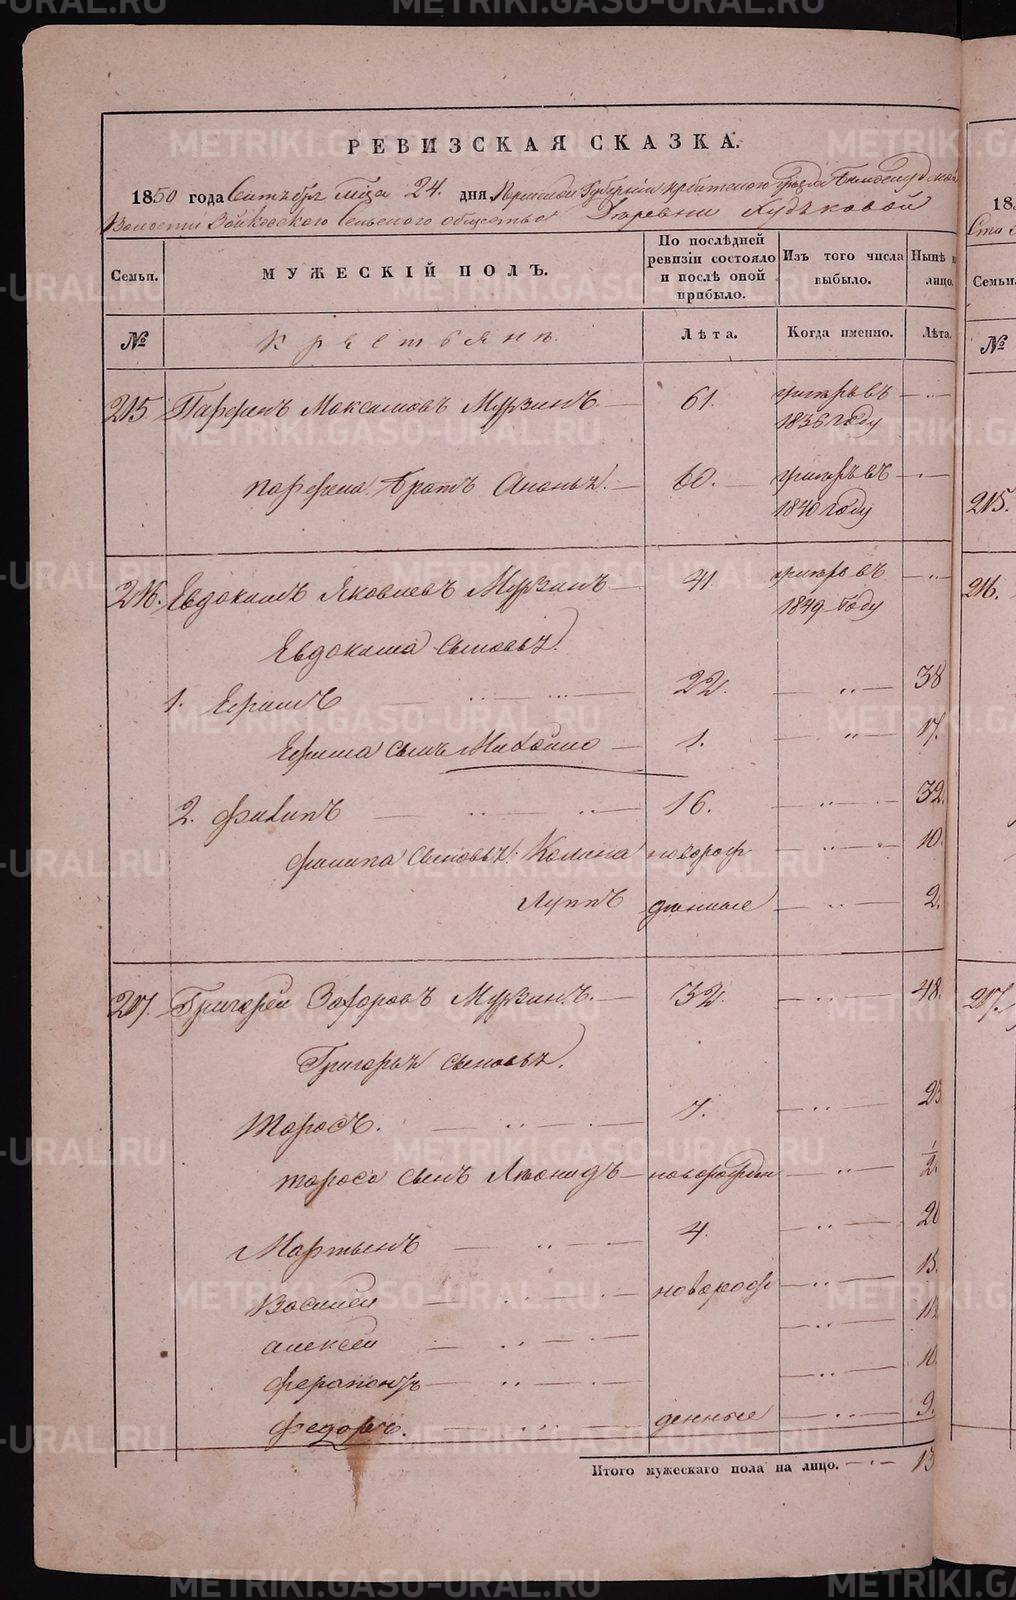 РЕВИЗСКАЯ СКАЗКА.
1850 года Сентября м҃ца 24. дня Пермской Губернии Ирбитского Уезда
Волости Зайковского Сельского общества Деревни Худяковой
Семьи. МУЖЕСКІЙ ПОЛЪ. По послѣдней ревизіи состояло и послѣ оной прибыло. Изъ того числа выбыло. Нынѣ лицо.
№ Крестьяне. Лѣта. Когда именно. Лѣта.
215 Парфенъ Максимовъ Мурзинъ. 61. умеръ въ
1836 году
парфена братъ Ананья. 60. умеръ въ
1840 году
216. Евдокимъ Яковлевъ Мурзинъ 41. умеръ въ
1849 году
Евдокима сыновья
1. Ефимъ 22. 38
Ефима сынъ Михайло 1. 17.
2. Филипъ 16. 32.
филипа сыновья: новорож 10.
Луппъ денные 2.
217. Григорей Захаровъ Мурзинъ. 32. 48.
Григорья сыновья.
Тарасъ. 7. 23
тараса сынъ Леонидъ новорожден 1/2.
Мартынъ 4. 20
Василей новорож 15.
алексей
ферапонтъ 10.
федоръ. денные 9.
Итого мужескаго пола на лицо. 13
18
Семьи.
№
215.
216.
217.
METRIKI.GASO-URAL.RU